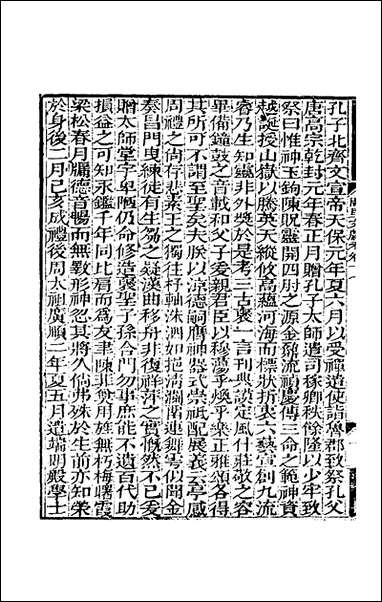 孔子北齊文宣帝天保元年夏六月以受禪遣使詣魯郡致祭孔父
唐高宗乾封元年春正月贈孔子太師遣司稼卿扶餘隆以少牢致
祭曰惟神玉鉤陳貺靈開四肘之源金鏡流禎慶傳三命之範神資
越誕授山嶽以勝英天縱攸高蘊河海而標狀折衷六藝宣創九流
睿乃生知靈非外奬於是考三古褒一言刊典謨定風什莊敬之容
畢備鐘鼓之音載和父子愛親君臣以穆蕩乎煥乎樂正雅頌各得
其所可不謂至聖矣夫朕以涼德嗣膺神器式崇祗配展義云亭感
周禮之尚存悲素王之獨往杼軸洙泗如挹清瀾留連舞雩似聞金
奏昌門曳練徒有生芻之疑漢曲移舟非復祥萍之實慨然不已爰
贈太師堂宇卑陋仍命修造褒聖子孫合門勿事庶能不遺百代助
損益之可知永鑒千年同比肩而為友聿陳菲奠用旌無朽梅曙霞
梁松春月牖德音暢而無斁形神忽其將久倘弗昧於生前亦知榮
於身後二月己亥成禮後周太祖廣順二年夏五月遣端明殿學士